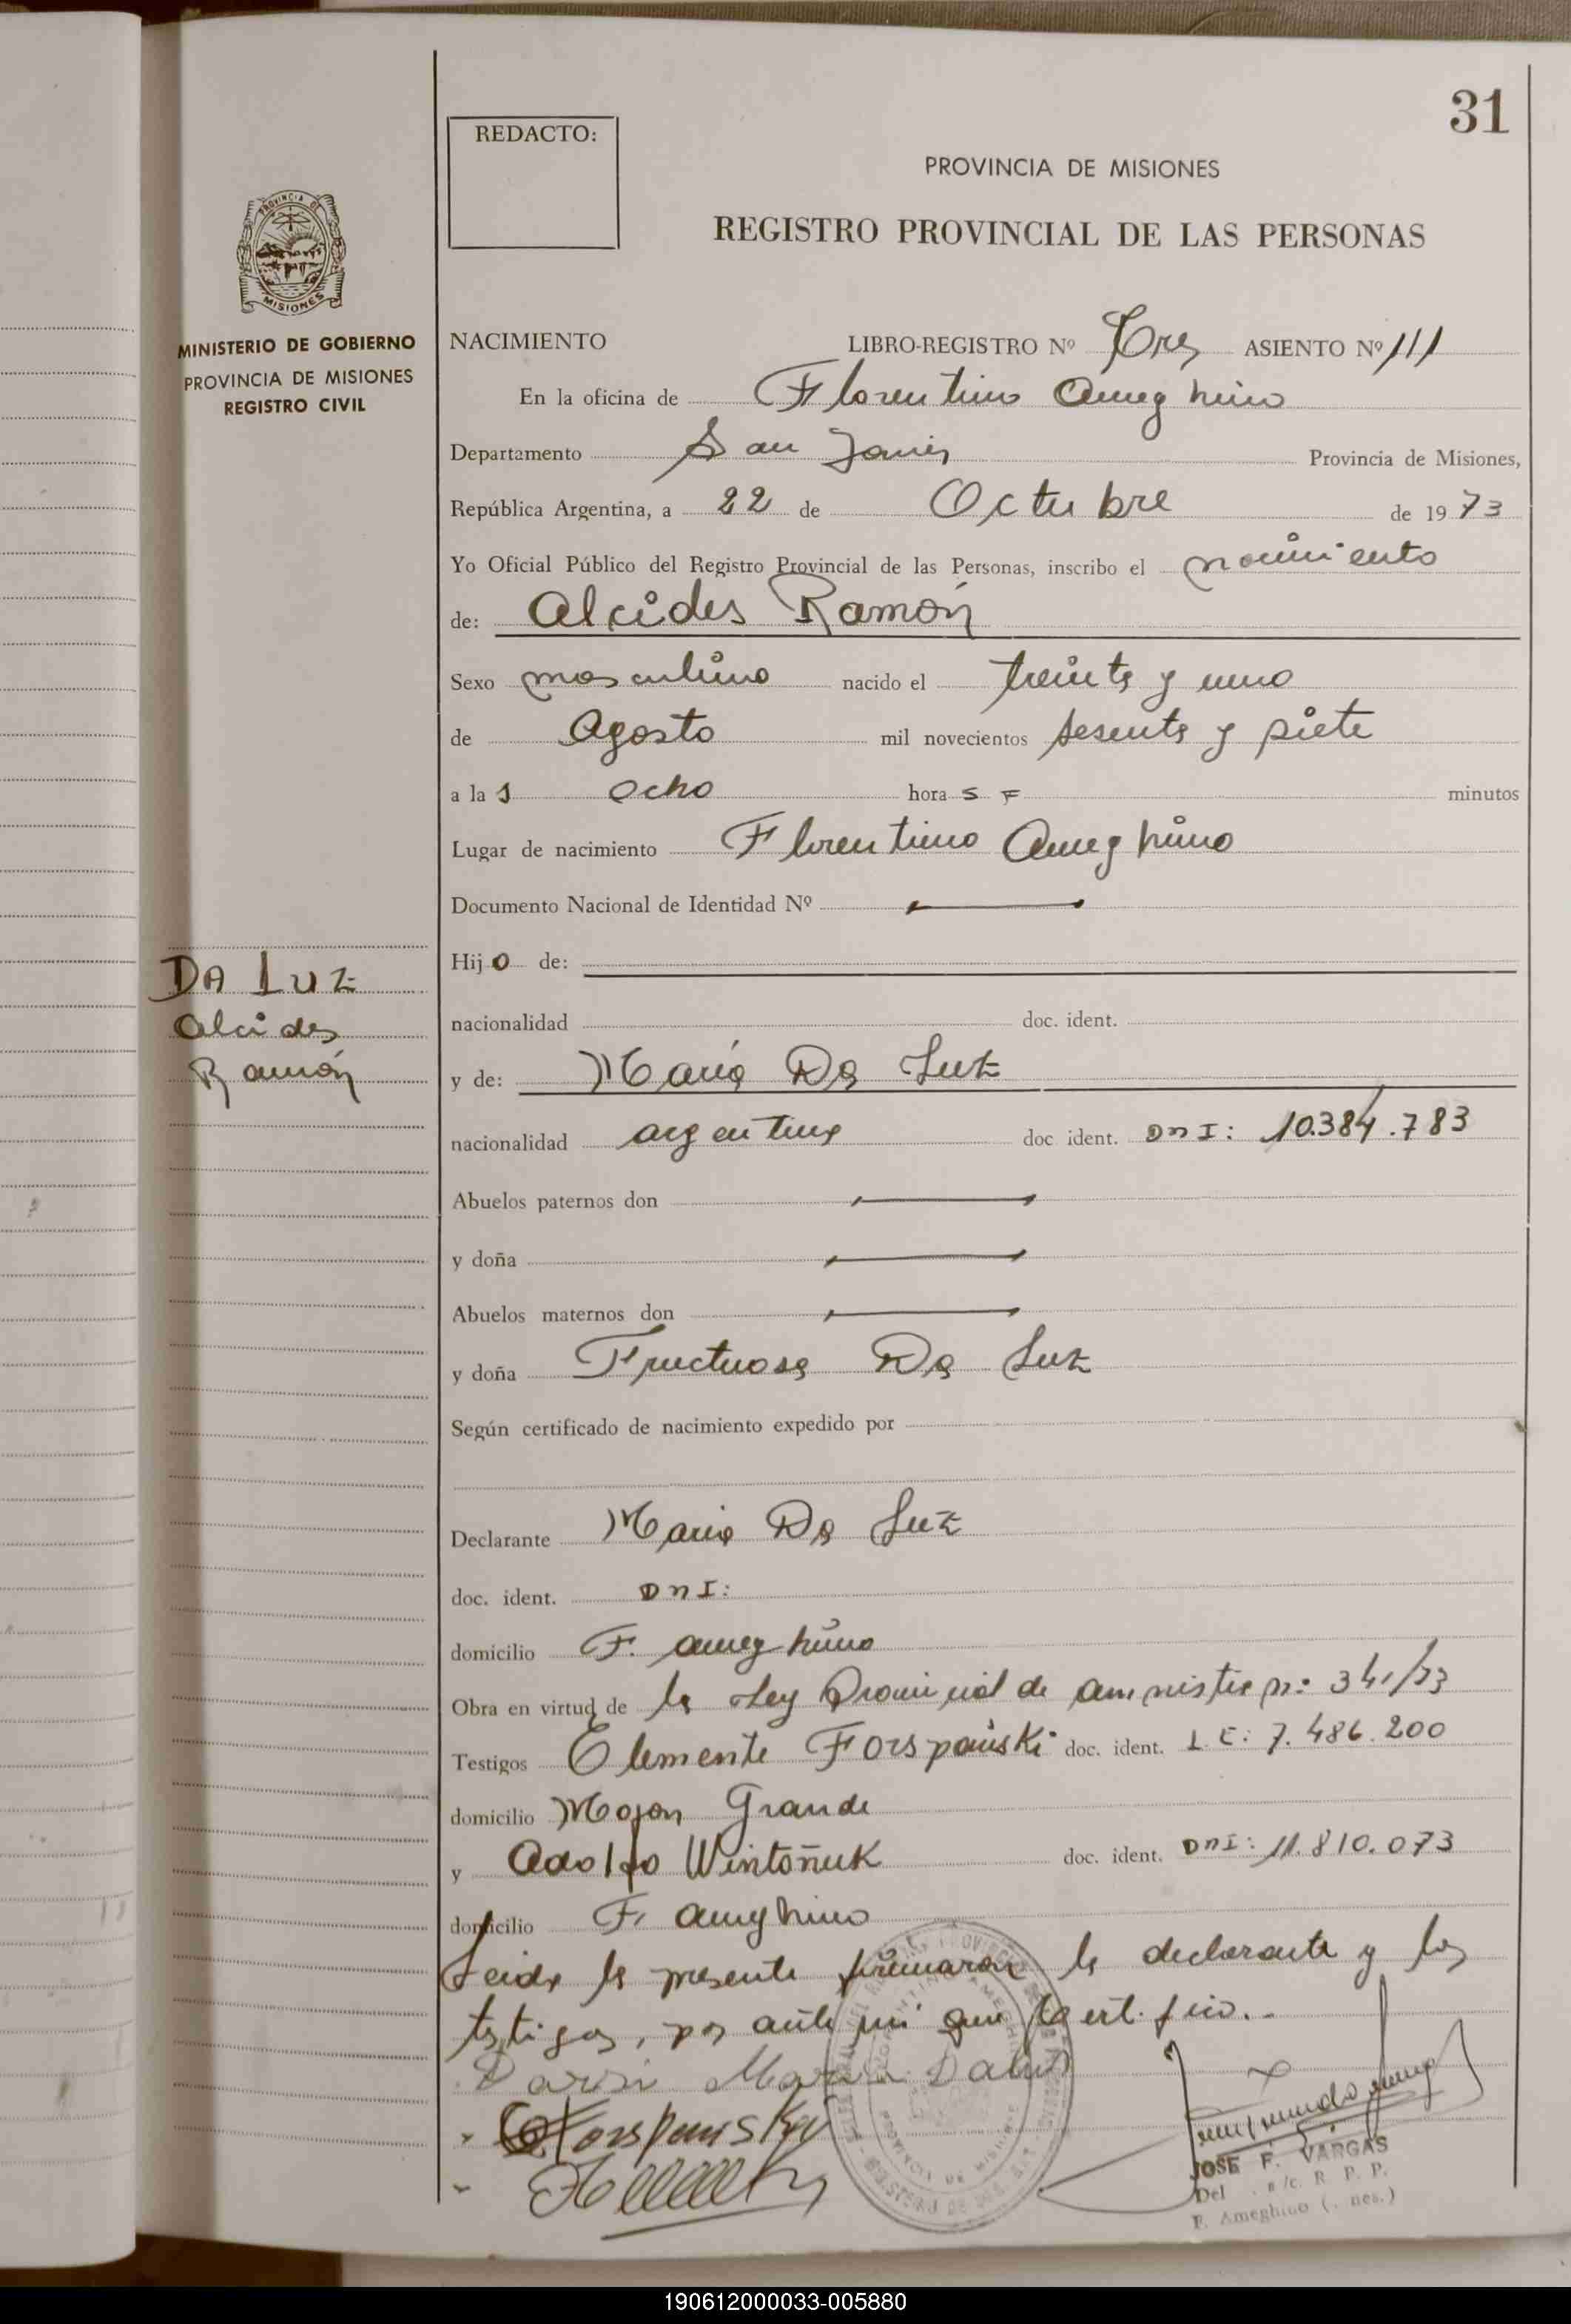 31
REDACTO:
PROVINCIA DE MISIONES
REGISTRO PROVINCIAL DE LAS PERSONAS
PROVINCIA DE
MISIONES
MINISTERIO DE GOBIERNO
PROVINCIA DE MISIONES
REGISTRO CIVIL
NACIMIENTO LIBRO-REGISTRO Nº Tres ASIENTO Nº 111
En la oficina de Florentino Ameghino
Departamento San Javier Provincia de Misiones,
República Argentina, a 22 de Octubre de 1973
Yo Oficial Público del Registro Provincial de las Personas, inscribo el nacimiento
de: Alcides Ramón
Sexo masculino nacido el treinta y uno
de Agosto mil novecientos sesenta y siete
a las ocho horas = minutos
Lugar de nacimiento Florentino Ameghino
Documento Nacional de Identidad Nº
Hijo de:
DA LUZ
Alcides
Ramón
nacionalidad doc. ident.
y de: María Da Luz
nacionalidad argentina doc ident. DNI: 10.384.783
Abuelos paternos don
y doña
Abuelos maternos don
y doña Fructuosa Da Luz
Según certificado de nacimiento expedido por
Declarante María Da Luz
doc. ident. DNI:
domicilio F. Ameghino
Obra en virtud de la Ley Provincial de amnistia nº 341/73
Testigos Clemente Forspański doc. ident. L.E: 7.486.200
domicilio Mojon Grande
y Adolfo Wintoñuk doc. ident. DNI: 11.810.073
domicilio F. Ameghino
Leida la presente firmaron la declarante y los
testigos, por ante mi que certifico.-
Maria Daluz
JOSE F. VARGAS
Del. R. P. P.
F. Ameghino
190612000033-005880